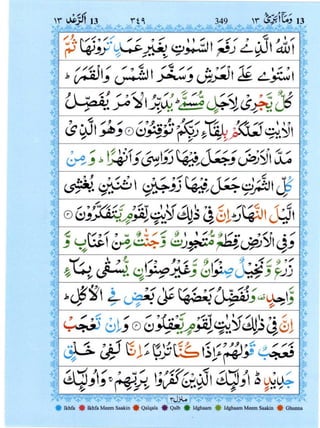 ١٣ اَلرَّعْد 13 ٣٤٩ 349 وَمَآ اُبَرِّئُ ١٣ 13
اَللّٰهُ الَّذِىْ رَفَعَ السَّمٰوٰتِ بِغَيْرِ عَمَدٍ تَرَوْنَهَا ثُمَّ
اسْتَوٰى عَلَى الْعَرْشِ وَسَخَّرَ الشَّمْسَ وَالْقَمَرَ ؕ
كُلٌّ يَّجْرِىْ لِاَجَلٍ مُّسَمًّى ؕ يُدَبِّرُ الْاَمْرَ يُفَصِّلُ
الْاٰيٰتِ لَعَلَّكُمْ بِلِقَآءِ رَبِّكُمْ تُوْقِنُوْنَ ۝ وَهُوَ الَّذِىْ
مَدَّ الْاَرْضَ وَجَعَلَ فِيْهَا رَوَاسِىَ وَاَنْهٰرًا ؕ وَمِنْ
كُلِّ الثَّمَرٰتِ جَعَلَ فِيْهَا زَوْجَيْنِ اثْنَيْنِ يُغْشِى
الَّيْلَ النَّهَارَ ؕ اِنَّ فِىْ ذٰلِكَ لَاٰيٰتٍ لِّقَوْمٍ يَّتَفَكَّرُوْنَ ۝
وَفِى الْاَرْضِ قِطَعٌ مُّتَجٰوِرٰتٌ وَّجَنّٰتٌ مِّنْ اَعْنَابٍ وَّ
زَرْعٌ وَّنَخِيْلٌ صِنْوَانٌ وَّغَيْرُ صِنْوَانٍ يُّسْقٰى بِمَآءٍ
وَّاحِدٍ وَنُفَضِّلُ بَعْضَهَا عَلٰى بَعْضٍ فِى الْاُكُلِ ؕ
اِنَّ فِىْ ذٰلِكَ لَاٰيٰتٍ لِّقَوْمٍ يَّعْقِلُوْنَ ۝ وَاِنْ تَعْجَبْ
فَعَجَبٌ قَوْلُهُمْ ءَاِذَا كُنَّا تُرٰبًا ءَاِنَّا لَفِىْ خَلْقٍ
جَدِيْدٍ ؕ اُولٰٓئِكَ الَّذِيْنَ كَفَرُوْا بِرَبِّهِمْ ۚ وَاُولٰٓئِكَ
منزل ٣
Ikhfa Ikhfa Meem Saakin Qalqala Qalb Idghaam Idghaam Meem Saakin Ghunna